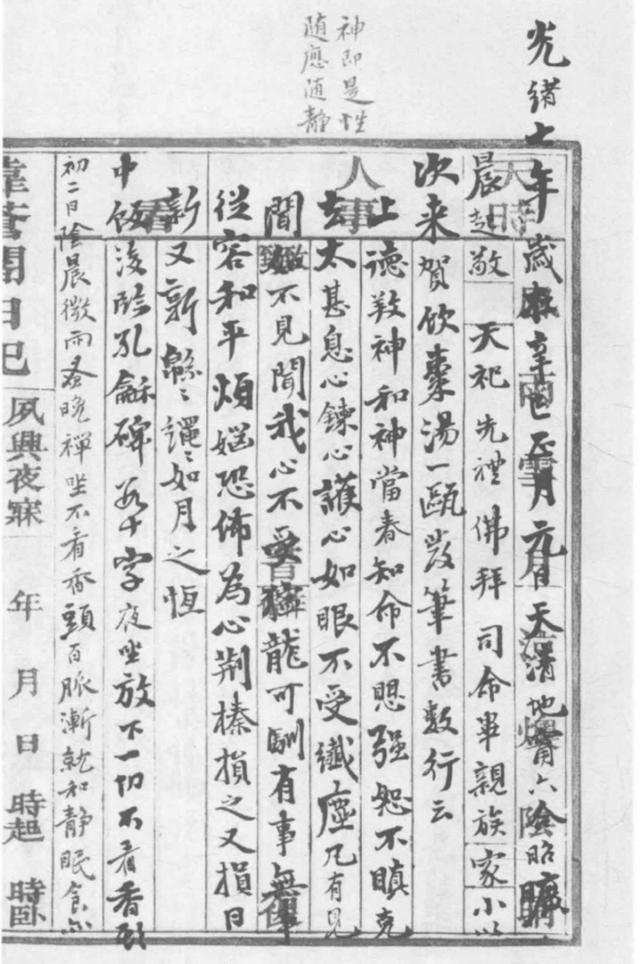 神即是性
随應随静
光緒七年歲在辛巳正月元日天清地甯六陰昭曠
晨起敬天祀先禮佛拜司命畢親族家小以
次来賀飲棗湯一甌發筆書數行云
上德敦神和神當春知命不思强恕不瞋克
去太甚息心鍊心護心如眼不受纖塵凡有見
聞如不見聞我心不受獰龍可馴有事無事
從容和平煩惱恐怖為心荆榛損之又損日
新又新緜緜繩繩如月之恆
中飯後臨孔龢碑卅字夜坐放下一切不看香頭
初二日陰晨微雨蚤晚禪坐不看香頭百脈漸就和静眠食亦
日記 夙興夜寐 年 月 日 時起 時臥